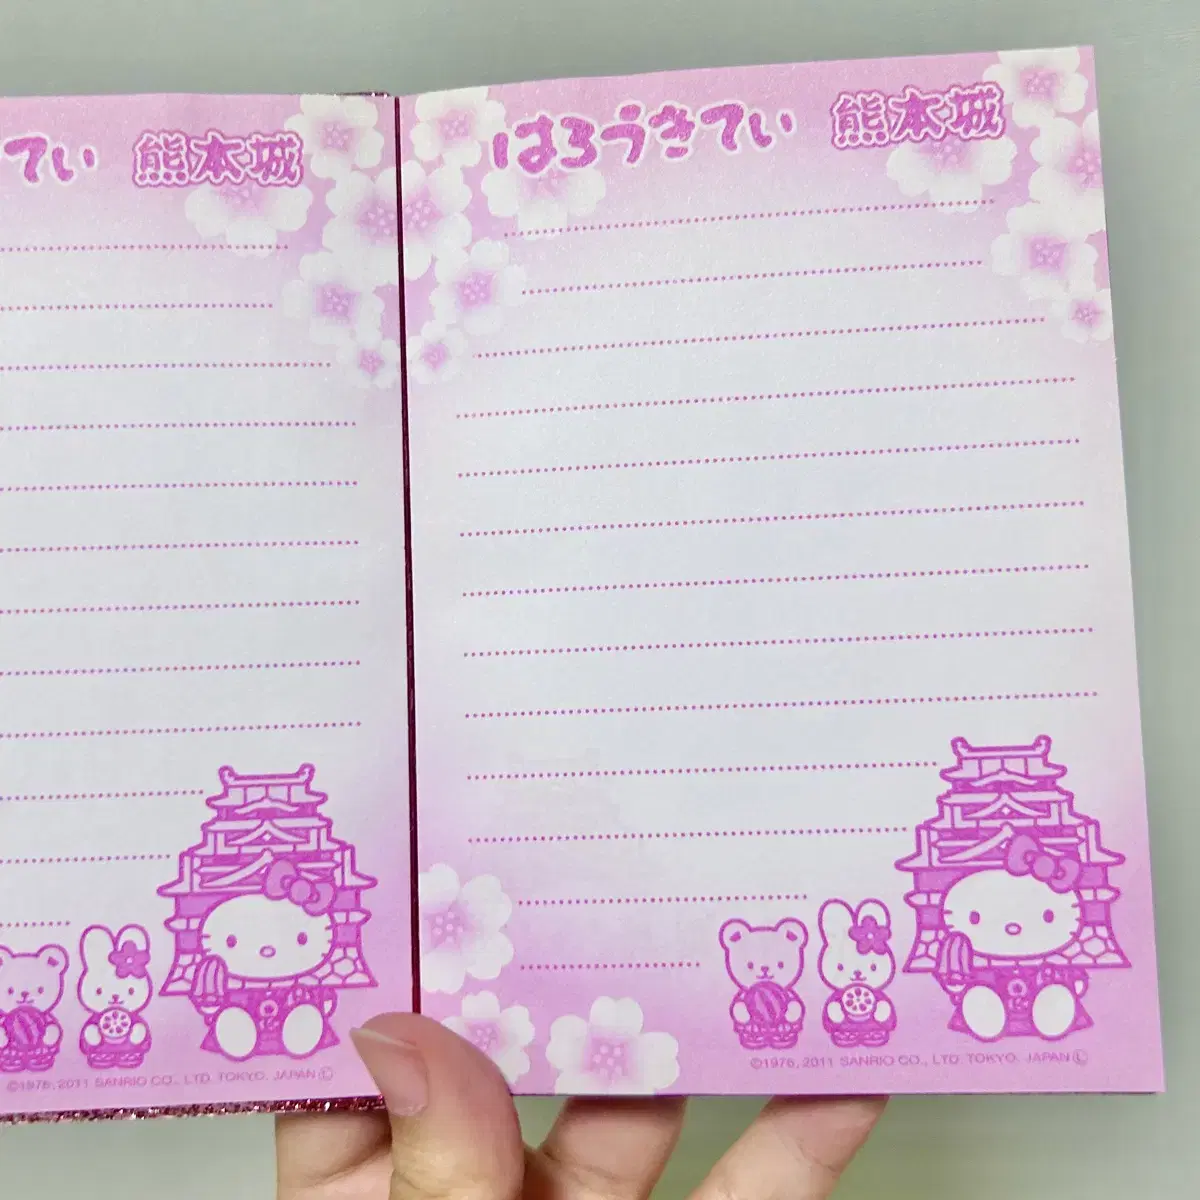 てい 熊本城
はろうきてい 熊本城
©1976, 2011 SANRIO CO., LTD. TOKYO, JAPAN Ⓛ
©1976, 2011 SANRIO CO., LTD. TOKYO, JAPAN Ⓛ